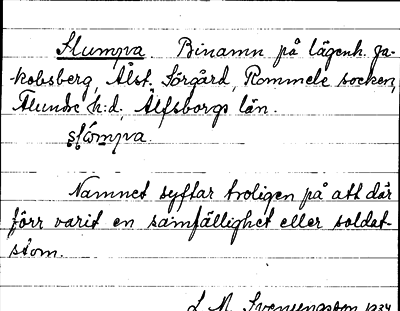 Slumpva Binamn på lägenh. Ja-
kobsberg, Ålst. Sörgård, Rommele socken,
Flundre h:d, Älfsborgs län.
Namnet syftar troligen på att där
förr varit en samfällighet eller soldat-
stom.
L. M. Svenungsson 1934